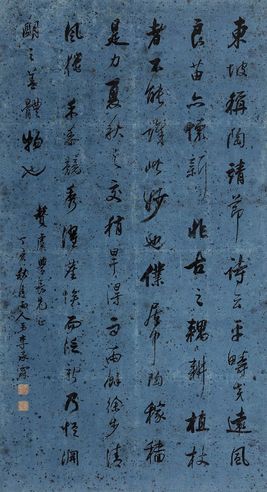 東坡稱陶靖節詩云平疇交遠風
良苗亦懷新非古之耦耕植杖
者不能識此妙也僕居中陶稼穡
是力夏秋之交稍旱得雨雨餘徐步清
風獵禾黍競秀濯埃而泛新乃悟淵
明之善體物也
兄正
丁亥秋月